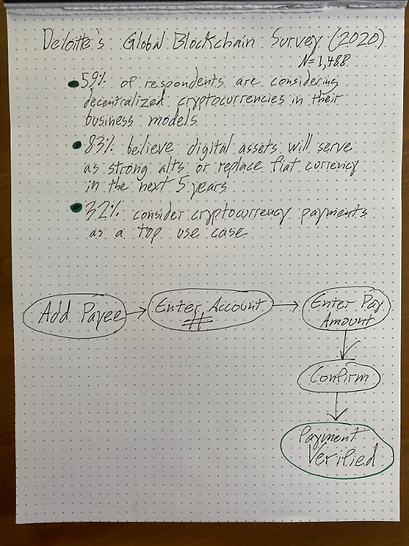 Deloitte's Global Blockchain Survey (2020)
N=1,488
59% of respondents are considering
decentralized cryptocurrencies in their
business models
83% believe digital assets will serve
as strong alts or replace fiat currency
in the next 5 years
32% consider cryptocurrency payments
as a top use case
Add Payee
Enter Account
#
Enter Pay
Amount
Confirm
Payment
Verified